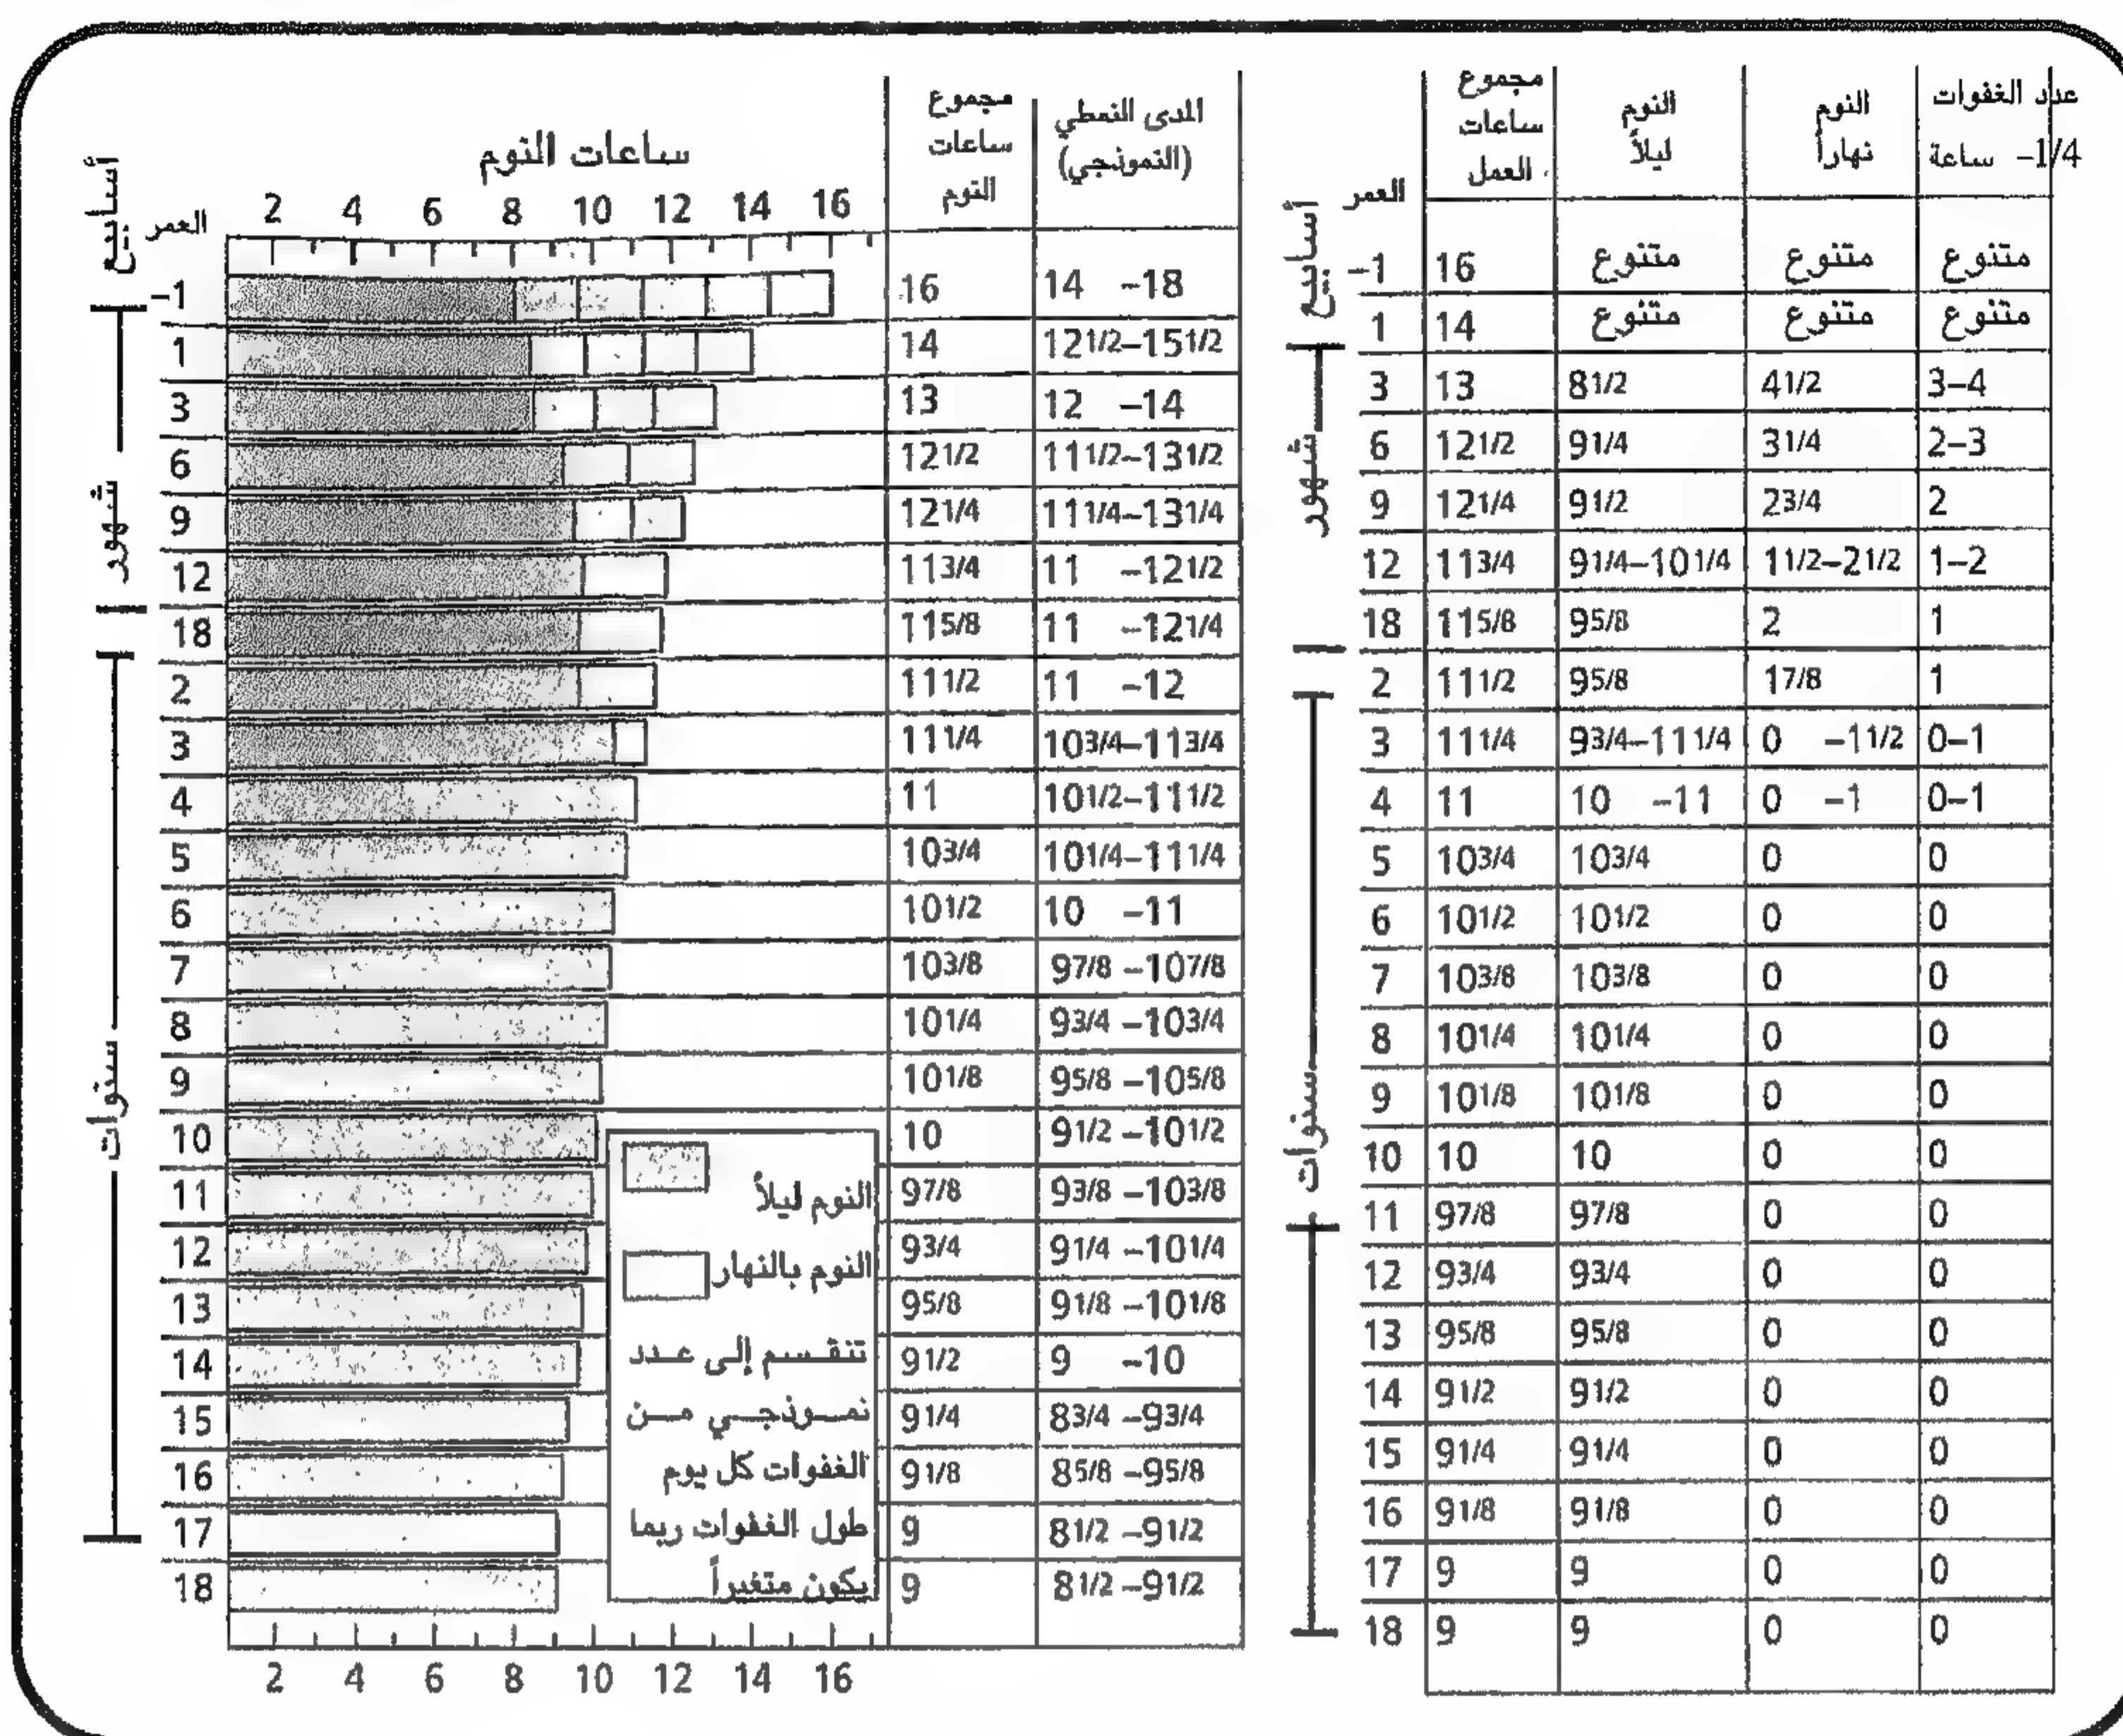 ساعات النوم
مجموع ساعات النوم
المدى النمطي (النموذجي)
أسابيع
العمر
2 4 6 8 10 12 14 16
-1 16 14 -18
1 14 121/2-151/2
3 13 12 -14
6 121/2 111/2-131/2
9 121/4 111/4-131/4
12 113/4 11 -121/2
18 115/8 11 -121/4
2 111/2 11 -12
3 111/4 103/4-113/4
4 11 101/2-111/2
5 103/4 101/4-111/4
6 101/2 10 -11
7 103/8 97/8 -107/8
8 101/4 93/4 -103/4
9 101/8 95/8 -105/8
10 10 91/2 -101/2
11 97/8 93/8 -103/8
12 93/4 91/4 -101/4
13 95/8 91/8 -101/8
14 91/2 9 -10
15 91/4 83/4 -93/4
16 91/8 85/8 -95/8
17 9 81/2 -91/2
18 9 81/2 -91/2
2 4 6 8 10 12 14 16
شهور
سنوات
النوم ليلاً
النوم بالنهار
تنقسم إلى عدد
نموذجي من
الغفوات كل يوم
طول الغفوات ربما
يكون متغيراً
أسابيع
العمر
مجموع ساعات العمل
النوم ليلاً
النوم نهاراً
عدد الغفوات
-1/4 ساعة
-1 16 متنوع متنوع متنوع
1 14 متنوع متنوع متنوع
3 13 81/2 41/2 3-4
6 121/2 91/4 31/4 2-3
9 121/4 91/2 23/4 2
12 113/4 91/4-101/4 11/2-21/2 1-2
18 115/8 95/8 2 1
2 111/2 95/8 17/8 1
3 111/4 93/4-111/4 0 -11/2 0-1
4 11 10 -11 0 -1 0-1
5 103/4 103/4 0 0
6 101/2 101/2 0 0
7 103/8 103/8 0 0
8 101/4 101/4 0 0
9 101/8 101/8 0 0
10 10 10 0 0
11 97/8 97/8 0 0
12 93/4 93/4 0 0
13 95/8 95/8 0 0
14 91/2 91/2 0 0
15 91/4 91/4 0 0
16 91/8 91/8 0 0
17 9 9 0 0
18 9 9 0 0
شهور
سنوات